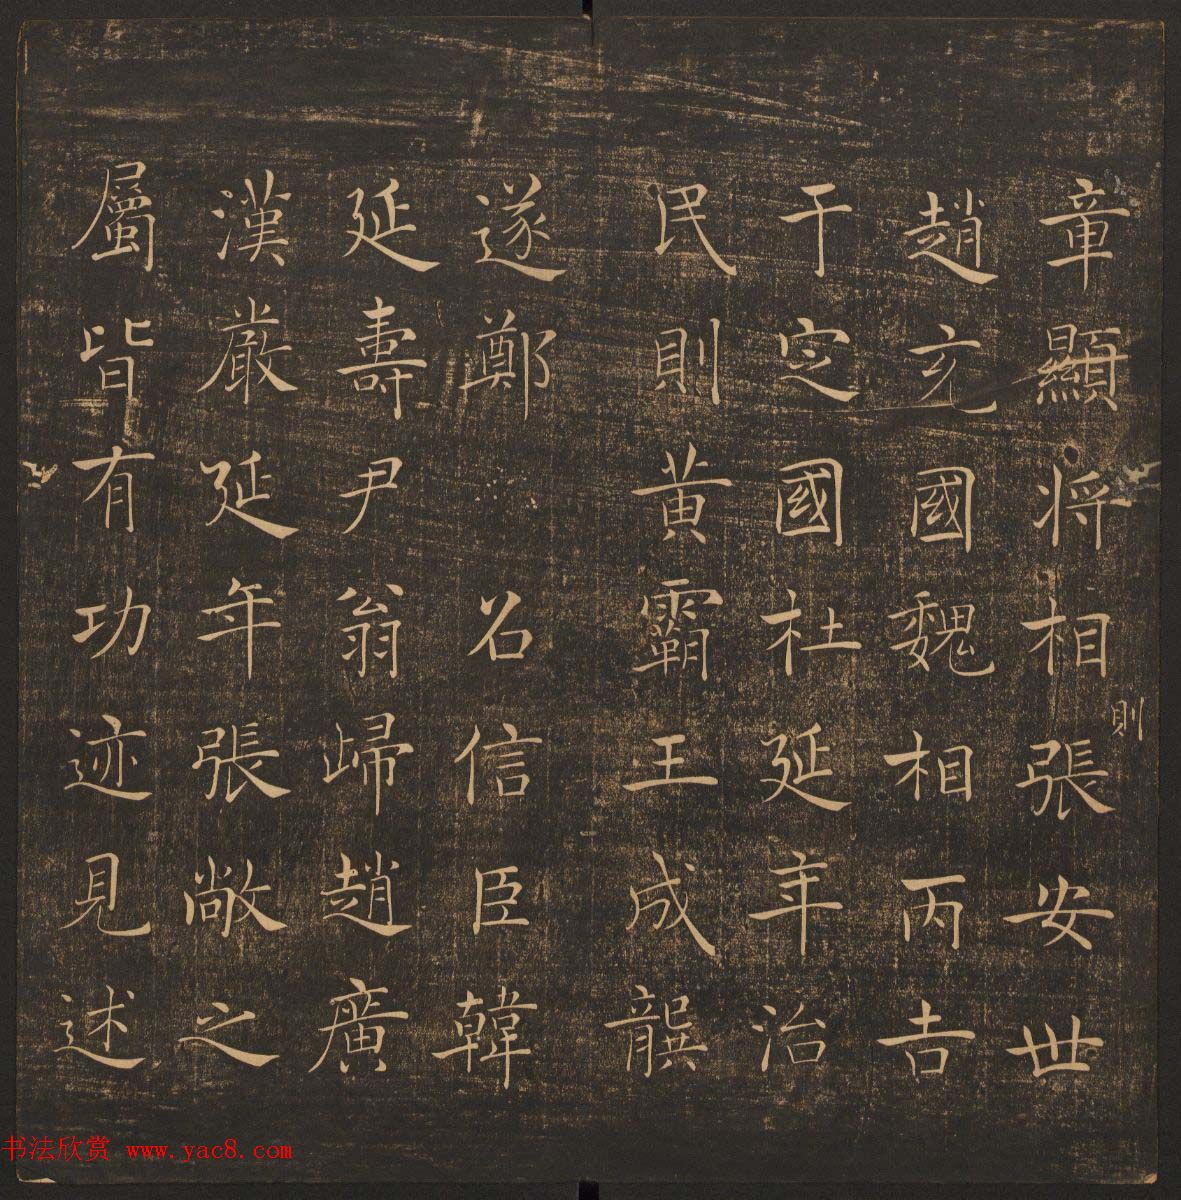 章顯将相張安世
則
趙充國魏相丙吉
于定國杜延年治
民則黃霸王成龔
遂鄭召信臣韓
延壽尹翁歸趙廣
漢嚴延年張敞之
屬皆有功迹見述
书法欣赏 www.yac8.com